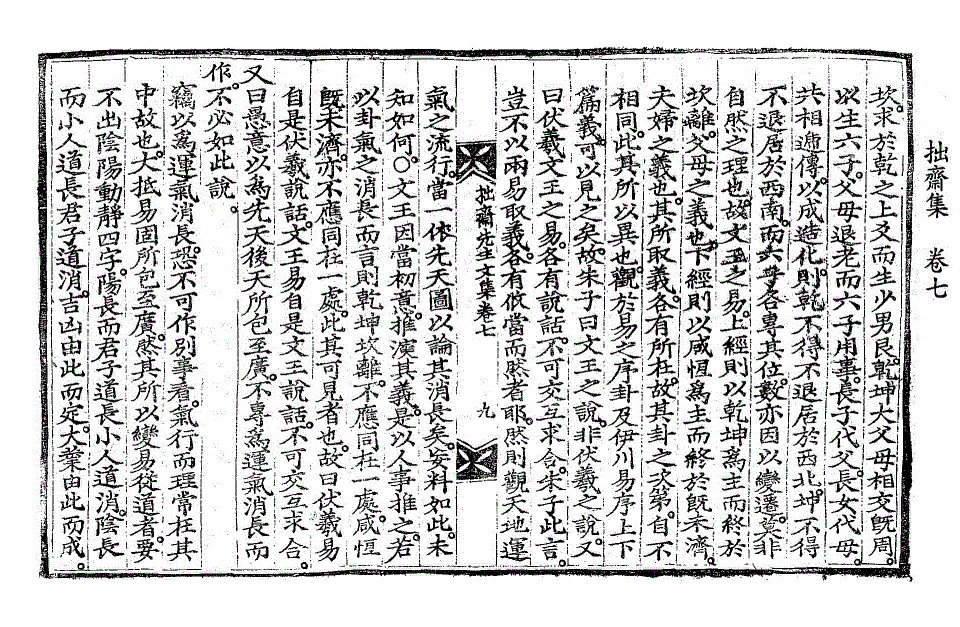 拙齋集 卷七
坎。求於乾之上爻而生少男艮。乾坤大父母相交旣周。
以生六子。父母退老而六子用事。長子代父。長女代母。
共相遞傳。以成造化。則乾不得不退居於西北。坤不得
不退居於西南。而六子各專其位數。亦因以變遷。莫非
自然之理也。故文王之易。上經則以乾坤爲主而終於
坎離。父母之義也。下經則以咸恒爲主而終於旣未濟。
夫婦之義也。其所取義。各有所在。故其卦之次第。自不
相同。此其所以異也。觀於易之序卦及伊川易序上下
篇義。可以見之矣。故朱子曰文王之說。非伏羲之說。又
曰伏羲文王之易。各有說話。不可交互求合。朱子此言。
豈不以兩易取義。各有攸當而然者耶。然則觀天地運
拙齋先生文集卷七 九
氣之流行。當一依先天圖以論其消長矣。妄料如此。未
知如何。○文王因當初意。推演其義。是以人事推之。若
以卦氣之消長而言則乾坤坎離。不應同在一處。咸恒
旣未濟。亦不應同在一處。此其可見者也。故曰伏羲易
自是伏羲說話。文王易自是文王說話。不可交互求合。
又曰愚意以爲先天後天所包至廣。不專爲運氣消長而
作。不必如此說。
竊以爲運氣消長。恐不可作別事看。氣行而理常在其
中故也。大抵易固所包至廣。然其所以變易從道者。要
不出陰陽動靜四字。陽長而君子道長。小人道消。陰長
而小人道長。君子道消。吉凶由此而定。大業由此而成。